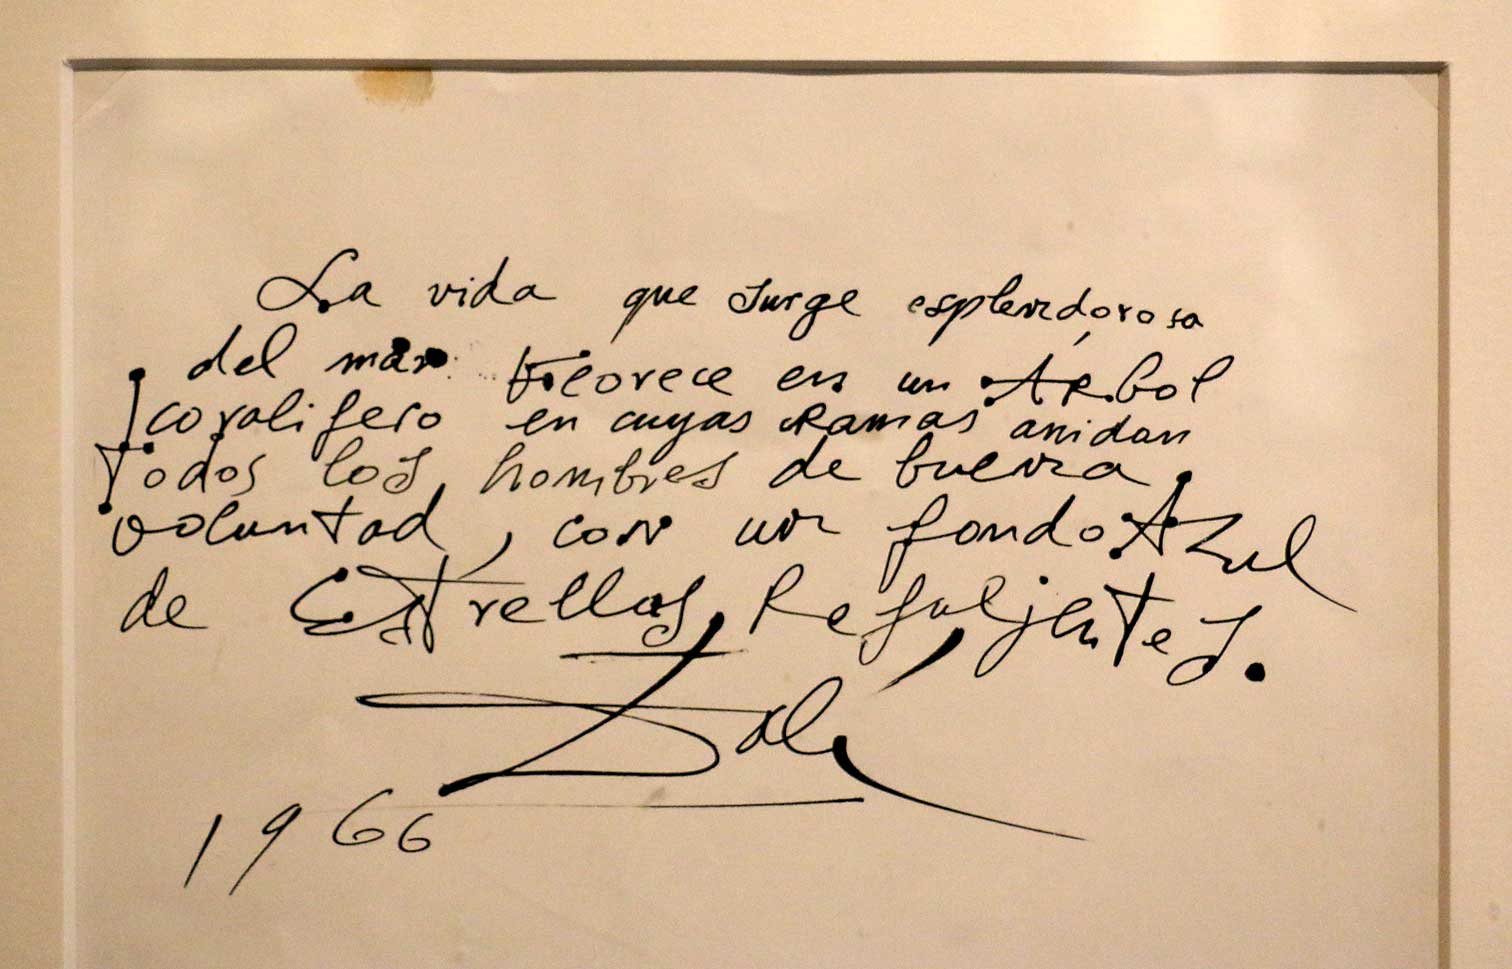 La vida que surge esplendorosa
del mar florece en un Arbol
coralifero en cuyas Ramas anidan
Todos los hombres de buena
voluntad, con un fondo Azul
de Estrellas Refuljentes.
Dalí
1966